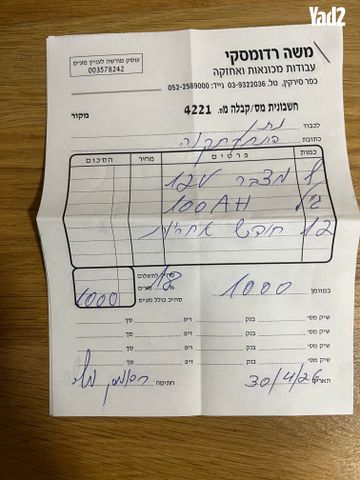 Yad2
משה רדומסקי
עבודות מכונאות ואחזקה
כפר סירקין, טל. 03-9322036 נייד: 052-2589000
עוסק מורשה לענין מע״מ
003578242
חשבונית מס/קבלה מס. 4221
מקור
לכבוד
כתובת פתח תקוה
כמות פרטים מחיר הסכום
מצבר 12V
100AH
12 חודש אחריות
סה״כ לתשלום
% מע״מ 18
סה״כ כולל מע״מ 1000
במזומן 1000
שיק מס׳ בנק ז״פ סך
שיק מס׳ בנק ז״פ סך
שיק מס׳ בנק ז״פ סך
שיק מס׳ בנק ז״פ סך
תאריך 30/4/26 חתימה